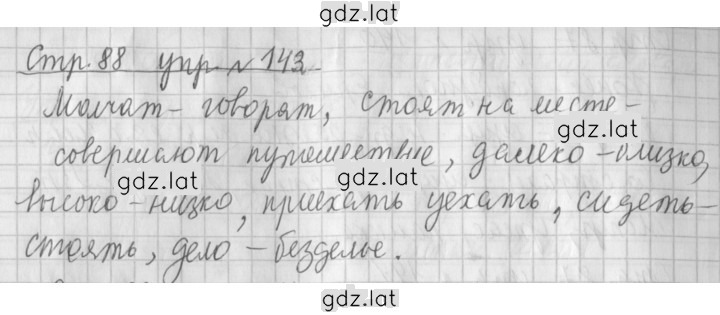 gdz.lat
Стр. 88 упр № 143
Молчат - говорят, стоят на месте -
gdz.lat
совершают путешествие, далеко - близко,
gdz.lat gdz.lat
высоко - низко, приехать уехать, сидеть -
стоять, дело - безделье.
gdz.lat